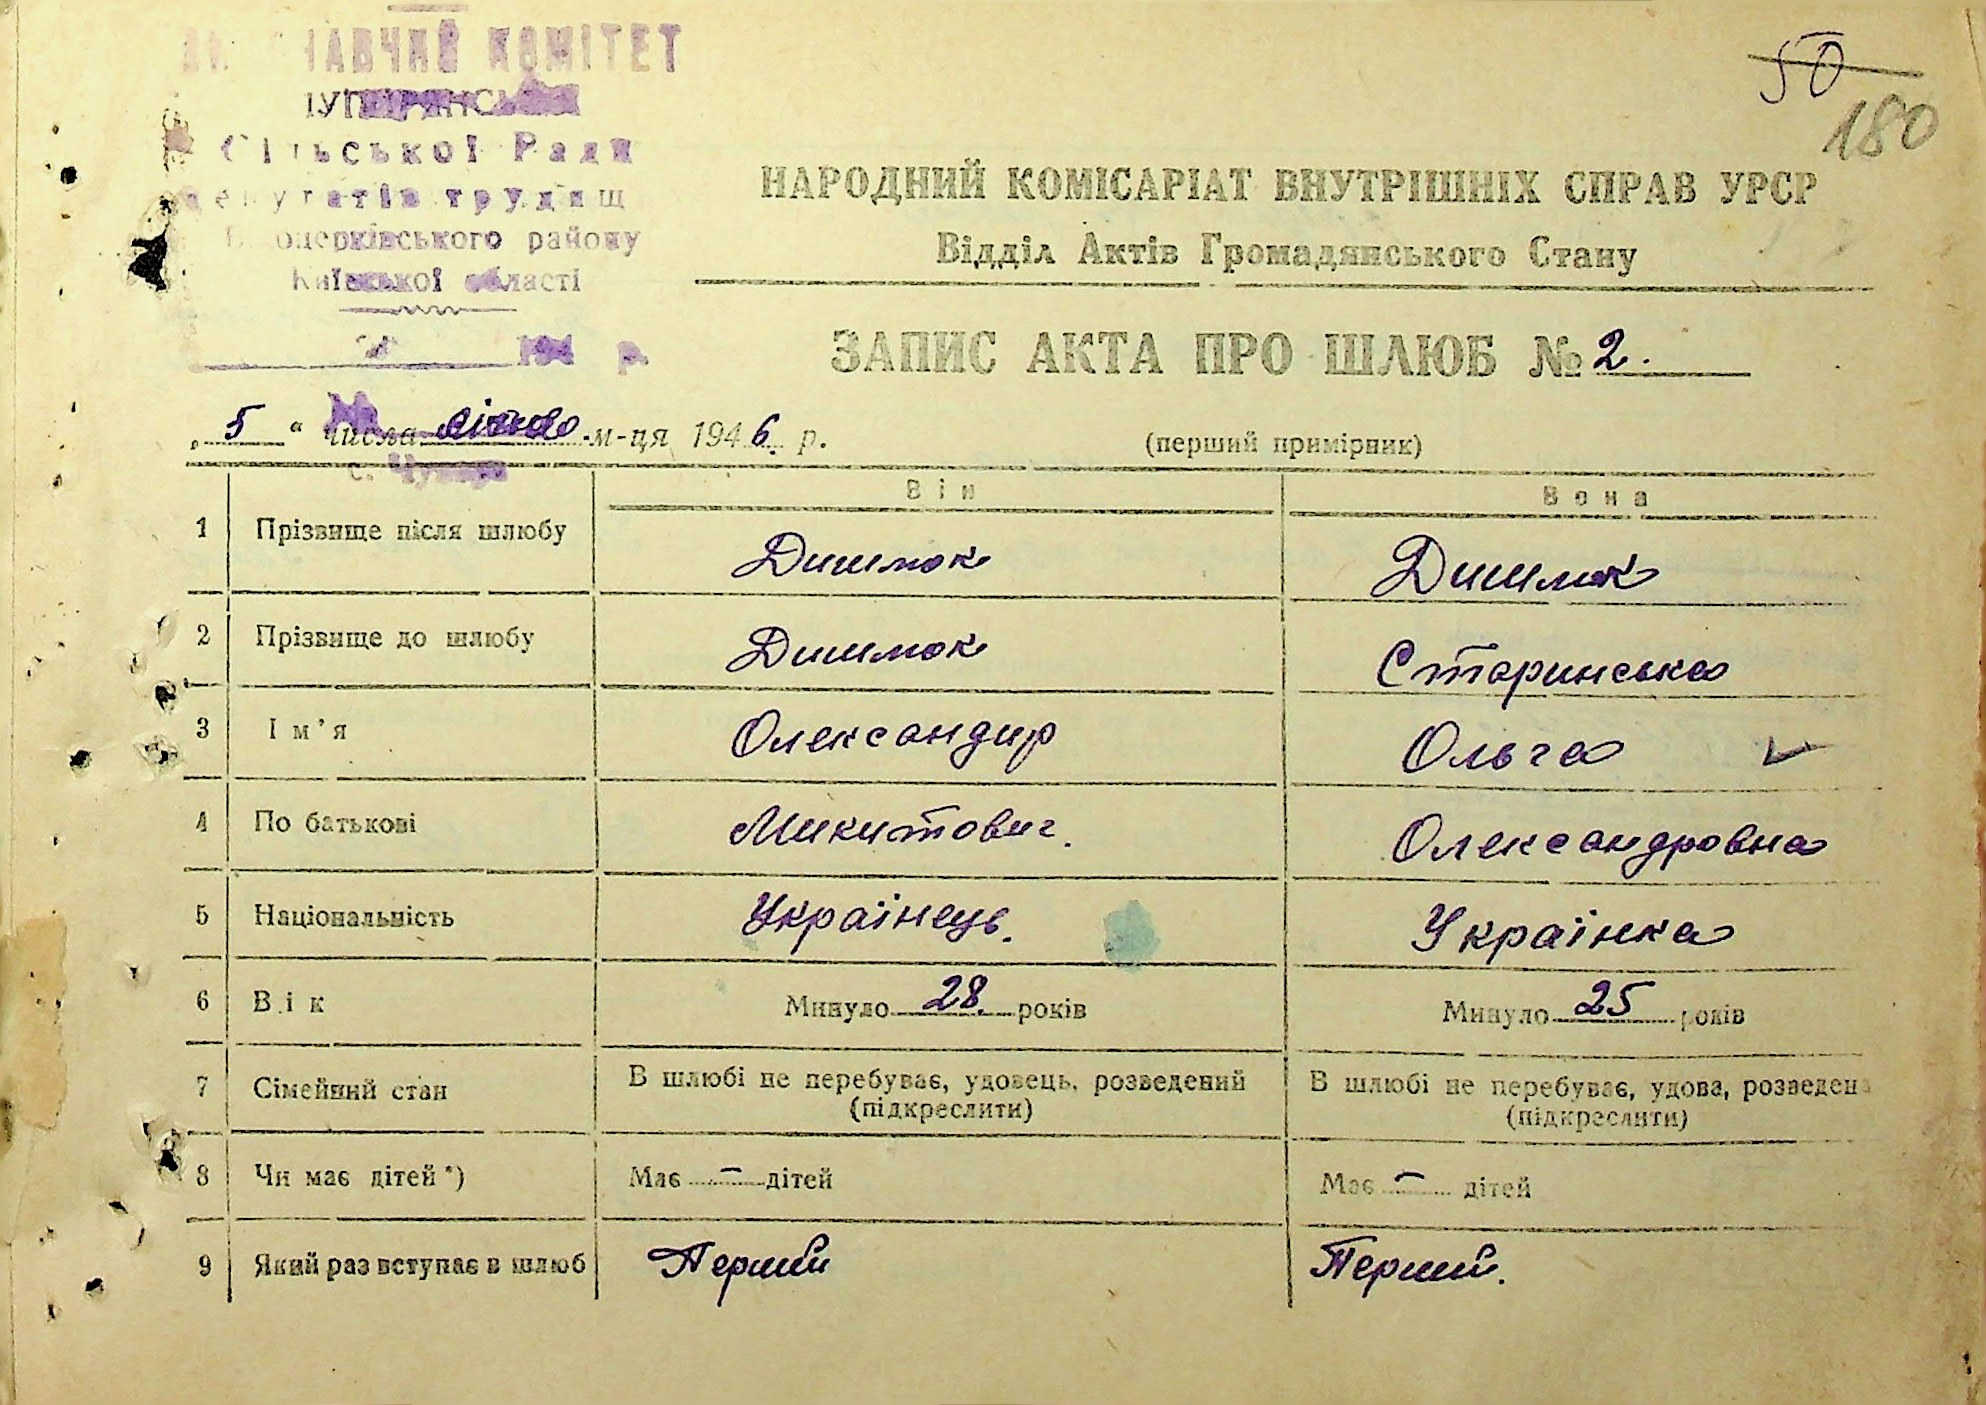 КОМІТЕТ
Сільської Ради
депутатів трудящ
Білоцерківського району
Київської області
194 р.
с. Чупира
50
180
НАРОДНИЙ КОМІСАРІАТ ВНУТРІШНІХ СПРАВ УРСР
Відділ Актів Громадянського Стану
ЗАПИС АКТА ПРО ШЛЮБ № 2.
„5“ числа січня м-ця 1946 р. (перший примірник)
Він Вона
1 Прізвище після шлюбу Дишлюк Дишлюк
2 Прізвище до шлюбу Дишлюк Старинська
3 Ім’я Олександир Ольга
4 По батькові Микитович. Олександровна
5 Національність Українець. Українка
6 Вік Минуло 28. років Минуло 25 років
7 Сімейний стан В шлюбі не перебуває, удовець, розведений (підкреслити) В шлюбі не перебуває, удова, розведена (підкреслити)
8 Чи має дітей*) Має — дітей Має — дітей
9 Який раз вступає в шлюб Перший Перший.